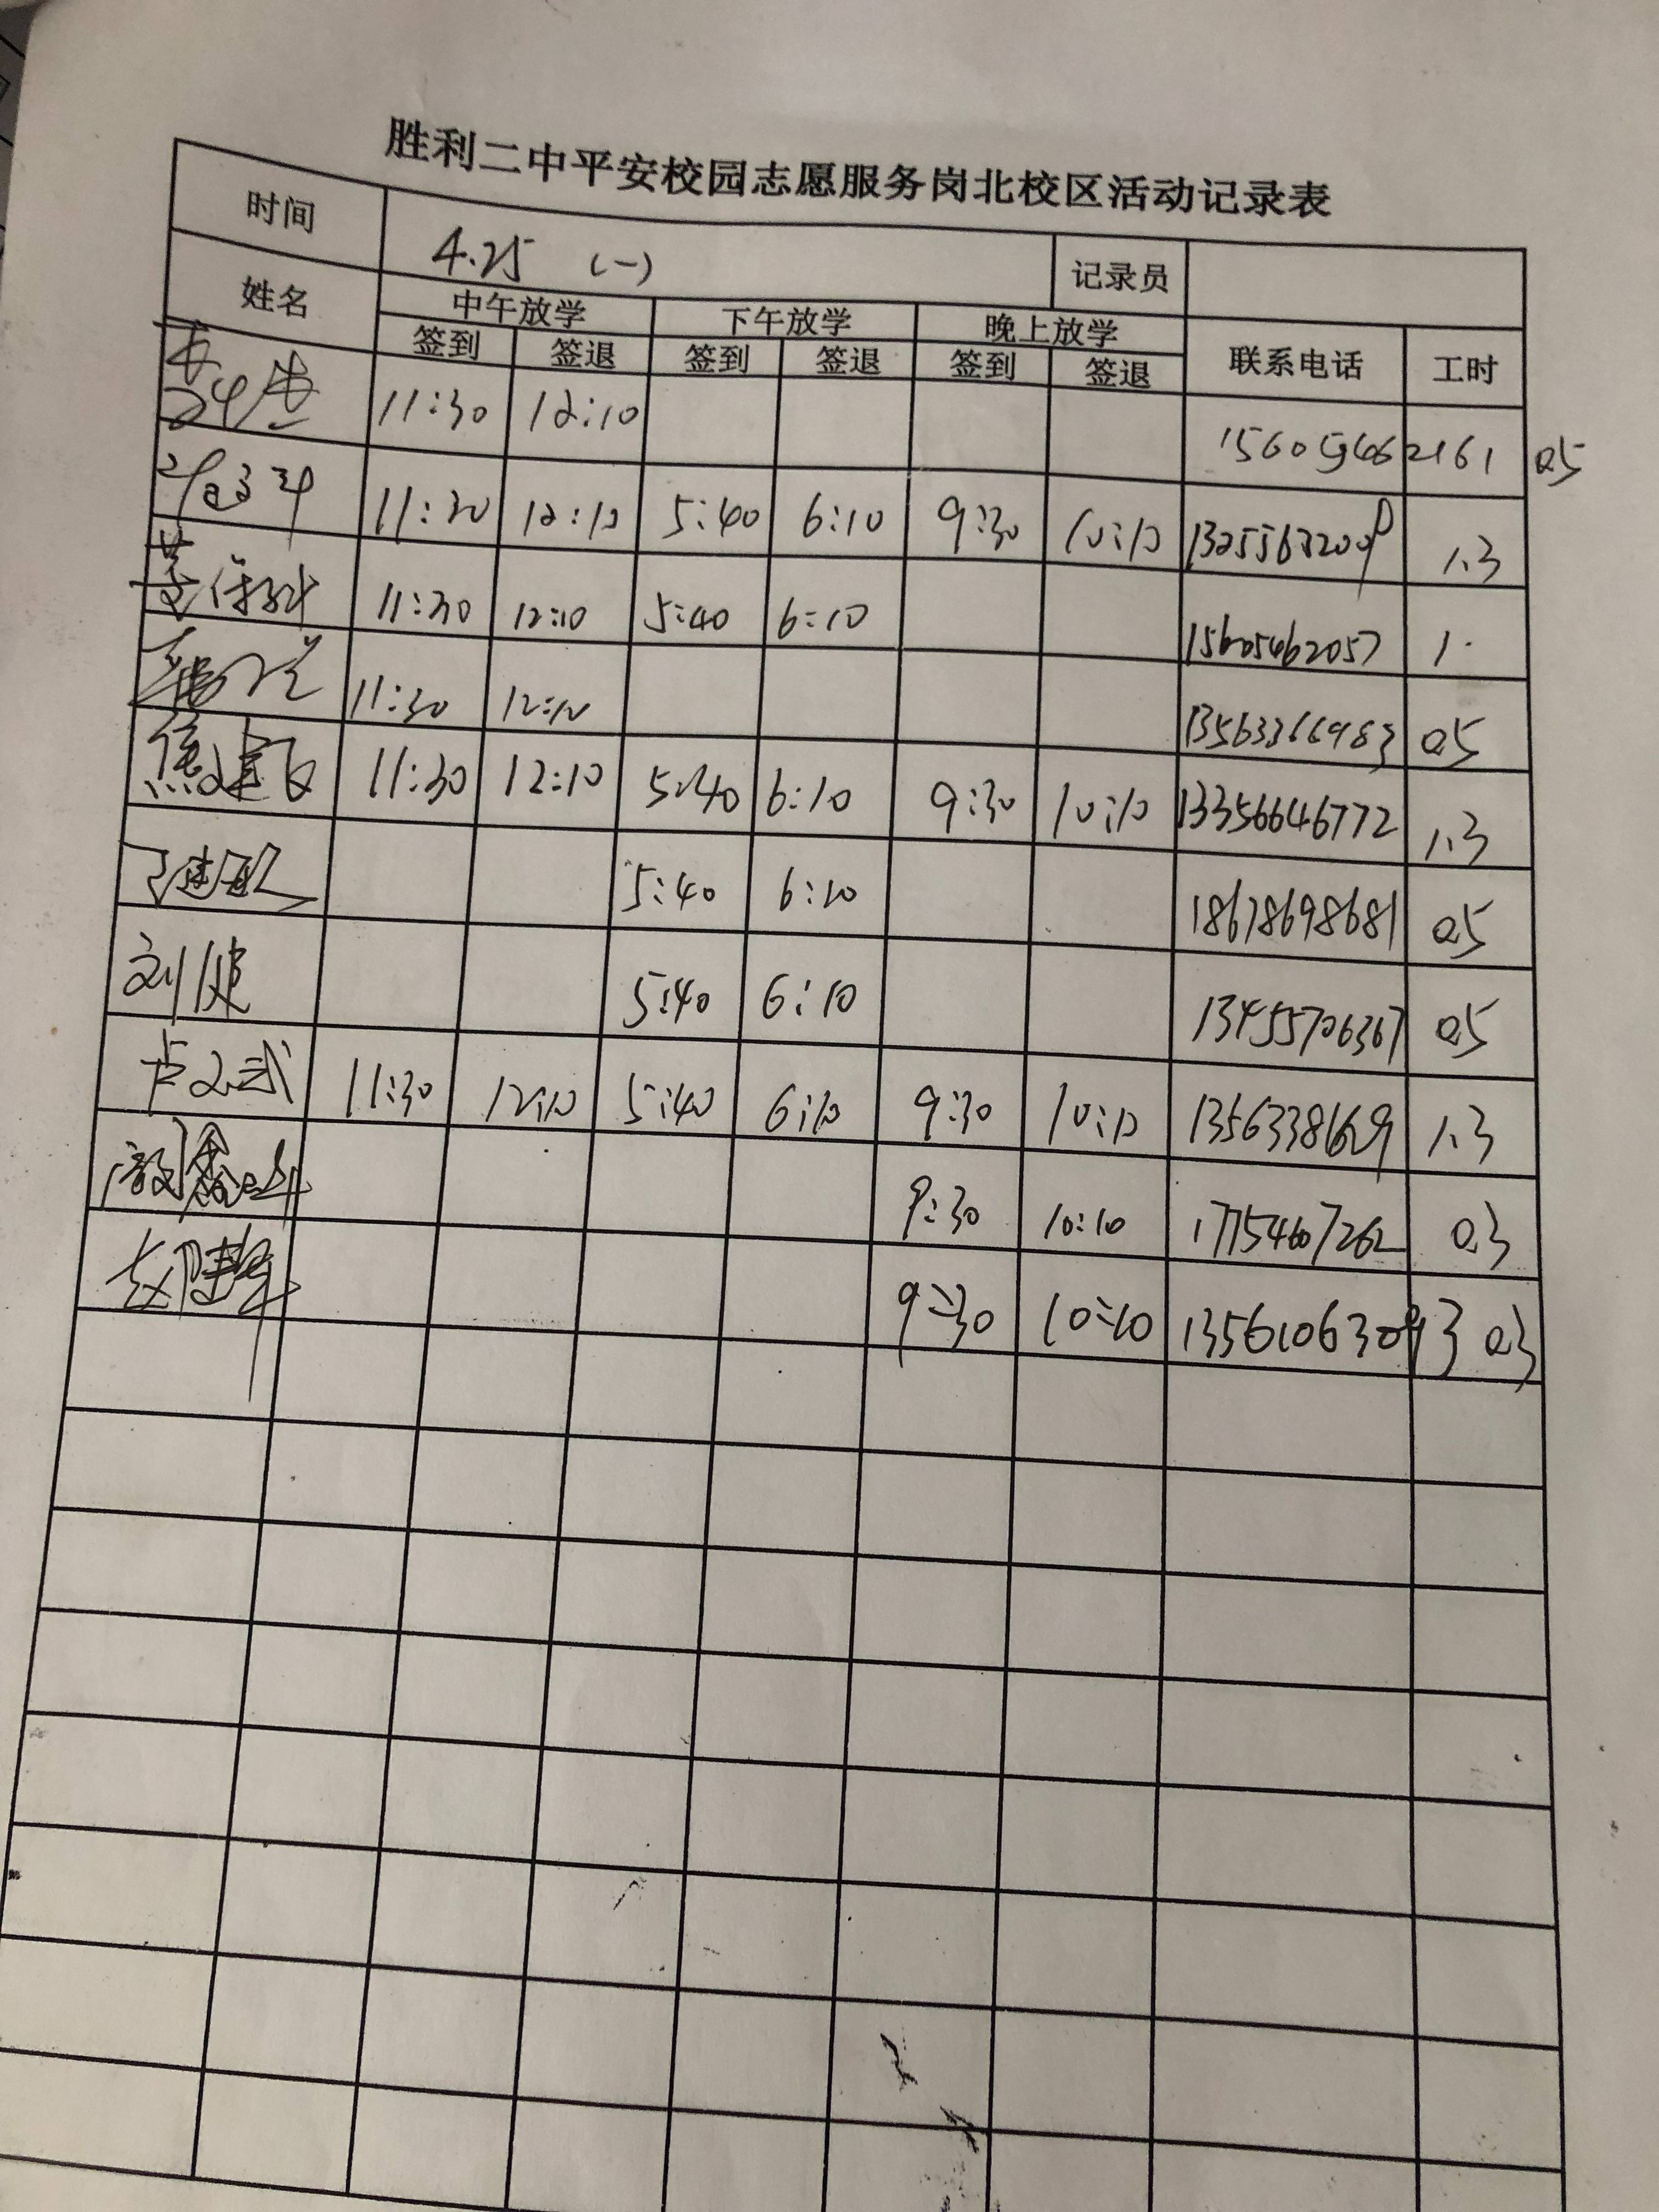 胜利二中平安校园志愿服务岗北校区活动记录表
时间 4.25 (一) 记录员
姓名 中午放学 下午放学 晚上放学 联系电话 工时
签到 签退 签到 签退 签到 签退
11:30 12:10 15605462161 0.5
11:30 12:10 5:40 6:10 9:30 10:10 1.3
11:30 12:10 5:40 6:10 15605462057 1.
11:30 12:10 13563366983 0.5
焦建飞 11:30 12:10 5:40 6:10 9:30 10:10 13356646772 1.3
5:40 6:10 18678698681 0.5
刘健 5:40 6:10 13455706367 0.5
卢文武 11:30 12:10 5:40 6:10 9:30 10:10 13563381629 1.3
9:30 10:10 17754607262 0.3
9:30 10:10 13561063093 0.3